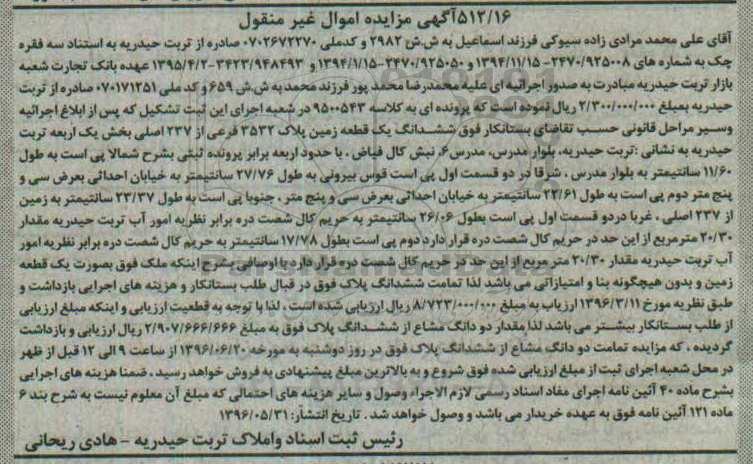 ۵۱۲/۱۶آگهی مزایده اموال غیر منقول
آقای علی محمد مرادی زاده سیوکی فرزند اسماعیل به ش.ش ۲۹۸۲ و کدملی ۰۷۰۲۶۷۲۲۷۰ صادره از تربت حیدریه به استناد سه فقره
چک به شماره های ۲۴۷۰/۹۲۵۰۰۸-۱۳۹۴/۱۱/۱۵ و ۲۴۷۰/۹۲۵۰۵۰-۱۳۹۴/۱/۱۵ و ۳۴۲۳/۹۴۸۴۹۳-۱۳۹۵/۴/۲ عهده بانک تجارت شعبه
بازار تربت حیدریه مبادرت به صدور اجرائیه ای علیه محمدرضا محمد پور فرزند محمد به ش.ش ۶۵۹ و کد ملی ۰۷۰۱۷۱۲۵۱ صادره از تربت
حیدریه بمبلغ ۲/۳۰۰/۰۰۰/۰۰۰ ریال نموده است که پرونده ای به کلاسه ۹۵۰۰۵۴۳ در شعبه اجرای این ثبت تشکیل که پس از ابلاغ اجرائیه
وسیر مراحل قانونی حسب تقاضای بستانکار فوق ششدانگ یک قطعه زمین پلاک ۳۵۳۲ فرعی از ۲۳۷ اصلی بخش یک اربعه تربت
حیدریه به نشانی :تربت حیدریه، بلوار مدرس، مدرس۶، نبش کال فیاض . با حدود اربعه برابر پرونده ثبتی بشرح شمالا پی است به طول
۱۱/۶۰ سانتیمتر به بلوار مدرس . شرقا در دو قسمت اول پی است قوس بیرونی به طول ۲۷/۷۶ سانتیمتر به خیابان احداثی بعرض سی و
پنج متر دوم پی است به طول ۲۲/۶۱ سانتیمتر به خیابان احداثی بعرض سی و پنج متر ، جنوبا پی است به طول ۲۳/۳۷ سانتیمتر به زمین
از ۲۳۷ اصلی ، غربا دردو قسمت اول پی است بطول ۲۶/۰۶ سانتیمتر به حریم کال شصت دره برابر نظریه امور آب تربت حیدریه مقدار
۲۰/۳۰ مترمربع از این حد در حریم کال شصت دره قرار دارد دوم پی است بطول ۱۷/۷۸ سانتیمتر به حریم کال شصت دره برابر نظریه امور
آب تربت حیدریه مقدار ۲۰/۳۰ متر مربع از این حد در حریم کال شصت دره قرار دارد با اوصافی مشرح اینکه ملک فوق بصورت یک قطعه
زمین و بدون هیچگونه بنا و امتیازاتی می باشد لذا تمامت ششدانگ پلاک فوق در قبال طلب بستانکار و هزینه های اجرایی بازداشت و
طبق نظریه مورخ ۱۳۹۶/۳/۱۱ ارزیاب به مبلغ ۸/۷۲۳/۰۰۰/۰۰۰ ریال ارزیابی شده است . لذا با توجه به قطعیت ارزیابی و اینکه مبلغ ارزیابی
از طلب بستانکار بیشتر می باشد لذا مقدار دو دانگ مشاع از ششدانگ پلاک فوق به مبلغ ۲/۹۰۷/۶۶۶/۶۶۶ ریال ارزیابی و بازداشت
گردیده ، که مزایده تمامت دو دانگ مشاع از ششدانگ پلاک فوق در روز دوشنبه به مورخه ۱۳۹۶/۰۶/۲۰ از ساعت ۹ الی ۱۲ قبل از ظهر
در محل شعبه اجرای ثبت از مبلغ ارزیابی شده فوق شروع و به بالاترین مبلغ پیشنهادی به فروش خواهد رسید . ضمنا هزینه های اجرایی
بشرح ماده ۴۰ آئین نامه اجرای مفاد اسناد رسمی لازم الاجراء وصول و سایر هزینه های احتمالی که مبلغ آن معلوم نیست به شرح بند ۶
ماده ۱۲۱ آئین نامه فوق به عهده خریدار می باشد و وصول خواهد شد . تاریخ انتشار: ۱۳۹۶/۰۵/۳۱
رئیس ثبت اسناد واملاک تربت حیدریه - هادی ریحانی